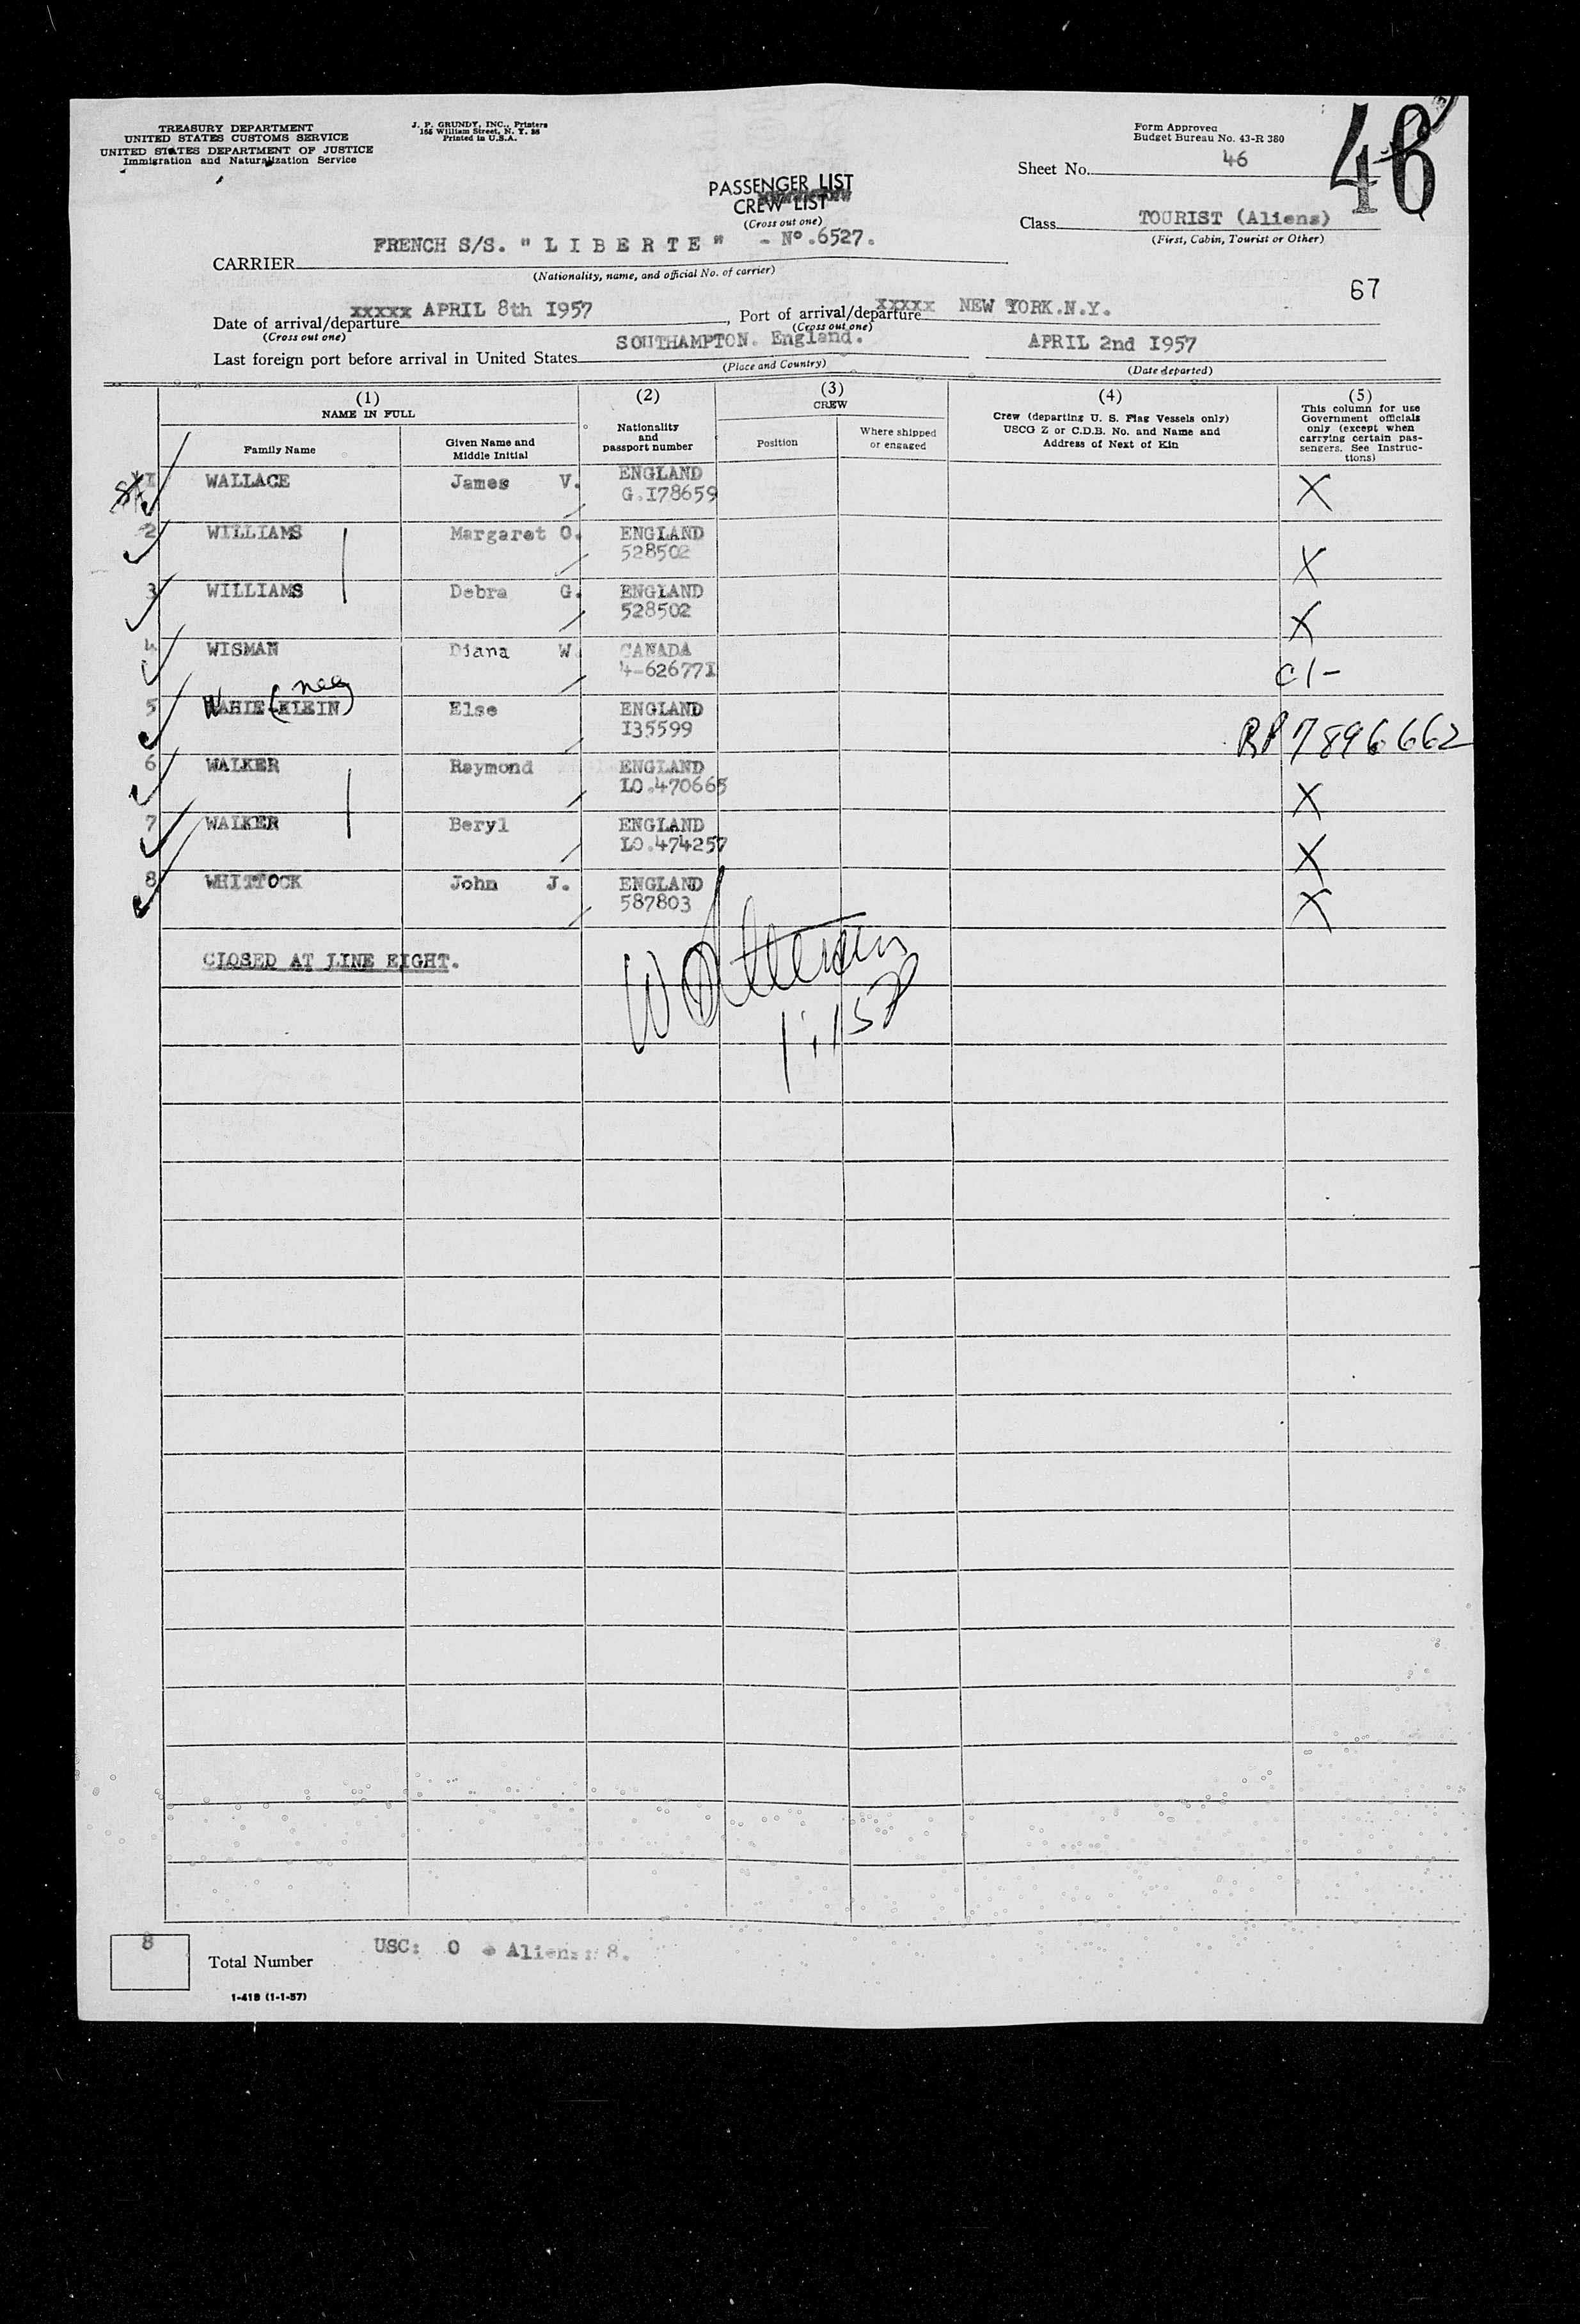 TREASURY DEPARTMENT
UNITED STATES CUSTOMS SERVICE
UNITED STATES DEPARTMENT OF JUSTICE
Immigration and Naturalization Service
J. P. GRUNDY, INC., Printers
Printed in U.S.A.
Form Approved
Budget Bureau No. 43-R 380
Sheet No. 46
46
PASSENGER LIST
CREW LIST
(Cross out one)
Class TOURIST (Aliens)
(First, Cabin, Tourist or Other)
CARRIER FRENCH S/S. "L I B E R T E" - No.6527.
(Nationality, name, and official No. of carrier)
67
Date of arrival/departure xxxxx APRIL 8th I957, Port of arrival/departure xxxxx NEW YORK.N.Y.
(Cross out one) (Cross out one)
Last foreign port before arrival in United States SOUTHAMPTON. England. APRIL 2nd I957
(Place and Country) (Date departed)
(1) (2) (3) (4) (5)
NAME IN FULL
Family Name
Given Name and Middle Initial
Nationality and passport number
CREW
Position
Where shipped or engaged
Crew (departing U. S. Flag Vessels only)
USCG Z or C.D.B. No. and Name and
Address of Next of Kin
This column for use
Government officials
only (except when
carrying certain pas-
sengers. See Instruc-
tions)
I WALLACE James V. ENGLAND X
G.I78659
2 WILLIAMS Margaret O. ENGLAND X
528502
3 WILLIAMS Debra G. ENGLAND X
528502
4 WISMAN Diana W. CANADA
4-62677I
5 (nee KLEIN) Else ENGLAND RP 7896662
I35599
6 WALKER Raymond ENGLAND X
LO.470665
7 WALKER Beryl ENGLAND X
LO.474257
8 WHITTOCK John J. ENGLAND X
587803
CLOSED AT LINE EIGHT.
8
Total Number
USC: 0 Aliens: 8.
I-418 (1-1-57)